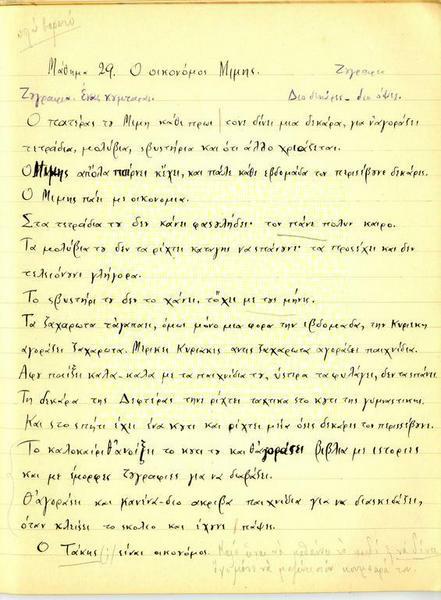 πολύ βαρετό
Μάθημα 29. Ο οικονόμος Μίμης.
Ζγραφιά
Ζγραφιά. Ένας κυμπαράς. Διο δεκάρες – διο όψες.
Ο πατέρας τυ Μίμη κάθε πρωί τυνε δίνει μια δεκάρα, για ν'αγοράσει
τετράδια, μολύβια, σβυστήρια και ότι άλλο χριάζεται.
Ο Μίμης απ'όλα παίρνει κ'έχει, και πάλε κάθε εβδομάδα τυ περισέβυνε δεκάρες.
Ο Μίμης πάει με οικονομία.
Στα τετράδια τυ δεν κάνει φασυλήδες· τον πάνε πολύν καιρο.
Τα μολύβια τυ δεν τα ρίχτει καταγης να σπάνυνε· τα προσέχει και δεν
τελειόνυνε γλήγορα.
Το σβυστήρι τυ δεν το χάνει, τόχει με τυς μήνες.
Τα ζαχαρωτα τ'αγαπαει, όμως μόνο μια φορα την εβδομαδα, την Κυριακη
αγοράζει ζαχαρωτα. Μερικες Κυριακες αντις ζαχαρωτα αγοράζει παιχνίδια.
Αφυ παίξει καλα-καλα με τα παιχνίδια τυ, ύστερα τα φυλάγει, δεν τα σπάνει.
Τη δεκάρα της Δεφτέρας τηνε ρίχτει ταχτικα στο κυτι της γυμναστικης.
Και στο σπήτι έχει ένα κυτι και ρίχτει μέσα όσες δεκάρες τυ περισέβυνε.
Το καλοκαίρι θ'ανοίξει το κυτι τυ και θ'αγοράσει βιβλία με ιστορίες
και με όμορφες ζγραφιες για να διαβάσει.
Θ'αγοράσει και κανένα-διο ακριβα παιχνίδια για να διασκεδάσει,
όταν κλείσει το σκολιο και έχυνε πάψες.
Ο Τάκης (;) είναι οικονόμος.